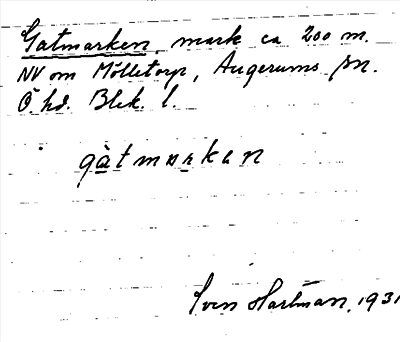 Gatmarken, mark ca 200 m.
NV om Mölletorp, Augerums sn.
Ö. hd. Blek. l.
gàtmarkan
Sven Hartman, 1931